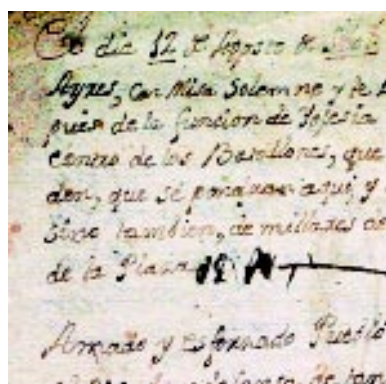 El dia 12 de Agosto de
Ayres, con Misa Solemne y
pues de la funcion de Yglesia
centro de los Batallones, que
den, que se pondran aqui, y
sino tambien, de millares de
de la Plaza
Amado y esforzado Pueblo